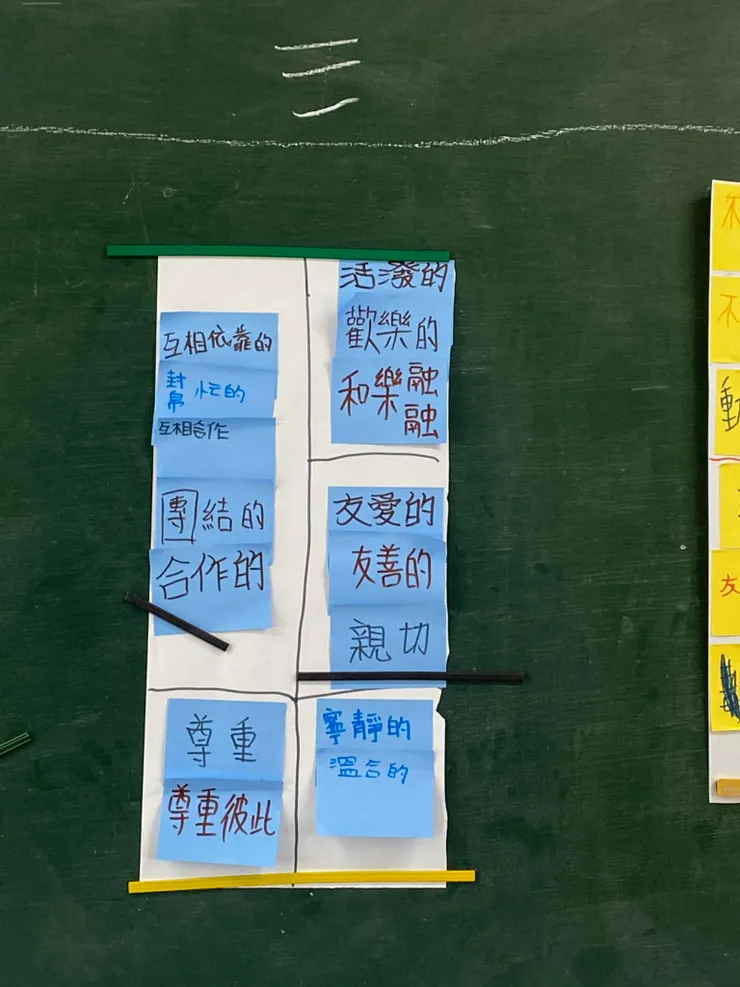 三
互相依靠的
幫忙的
互相合作
團結的
合作的
活潑的
歡樂的
和樂融融
友愛的
友善的
親切
尊重
尊重彼此
寧靜的
溫合的
不
不
友